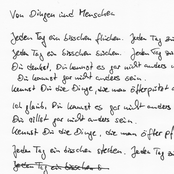 Von Dingen und Menschen
Jeden Tag ein bisschen fluchen. Jeden Tag
Jeden Tag ein bisschen suchen. Jeden Tag
Du denkst, Du kannst es gar nicht anders
Du kannst gar nicht anders sein.
Kennst Du die Dinge, die man öfter
Ich glaub, Du kannst es gar nicht anders
Du willst gar nicht anders sein.
Kennst Du die Dinge, die man öfter
Jeden Tag ein bisschen sterben. Jeden Tag
Jeden Tag ein bisschen